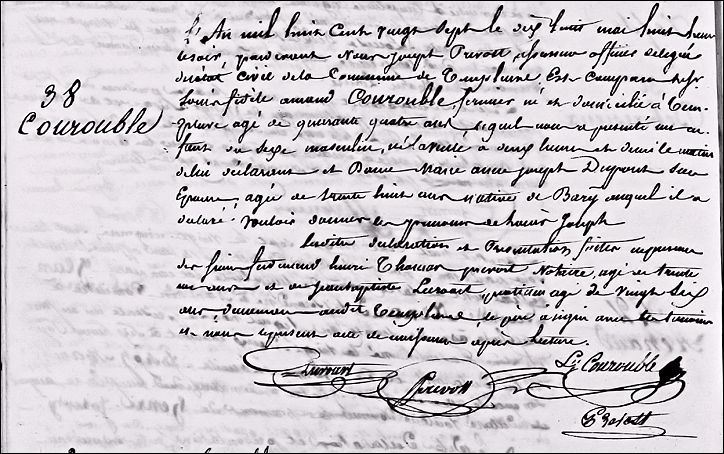 38
Courouble
L'An mil huit cent vingt sept le dix huit mai huit heures
du soir, pardevant Nous Joseph Prevost, officier délégué
de l'état civil de la Commune de Templeuve, Est comparu le Sr
Louis fidele amand Courouble fermier né et domicilié à Tem-
pleuve agé de quarante quatre ans, lequel nous a presenté un en-
fant du Sexe masculin, né à deux heures et demie le matin
de lui déclarant et Dame Marie anne joseph Dupont son
Epouse, agée de trente huit ans natives de auquel il a
declaré vouloir donner les prenoms de Joseph
Ladite déclaration et Presentation faites en presence
des Sieurs ferdinand henri Thomas prevost Notaire, agé de trente
un ans et de jeanbaptiste praticien agé de vingt Six
ans demeurans audit Templeuve, le pere a signé avec les temoins
et nous le present acte de naissance après lecture.
Prevost
L. Courouble